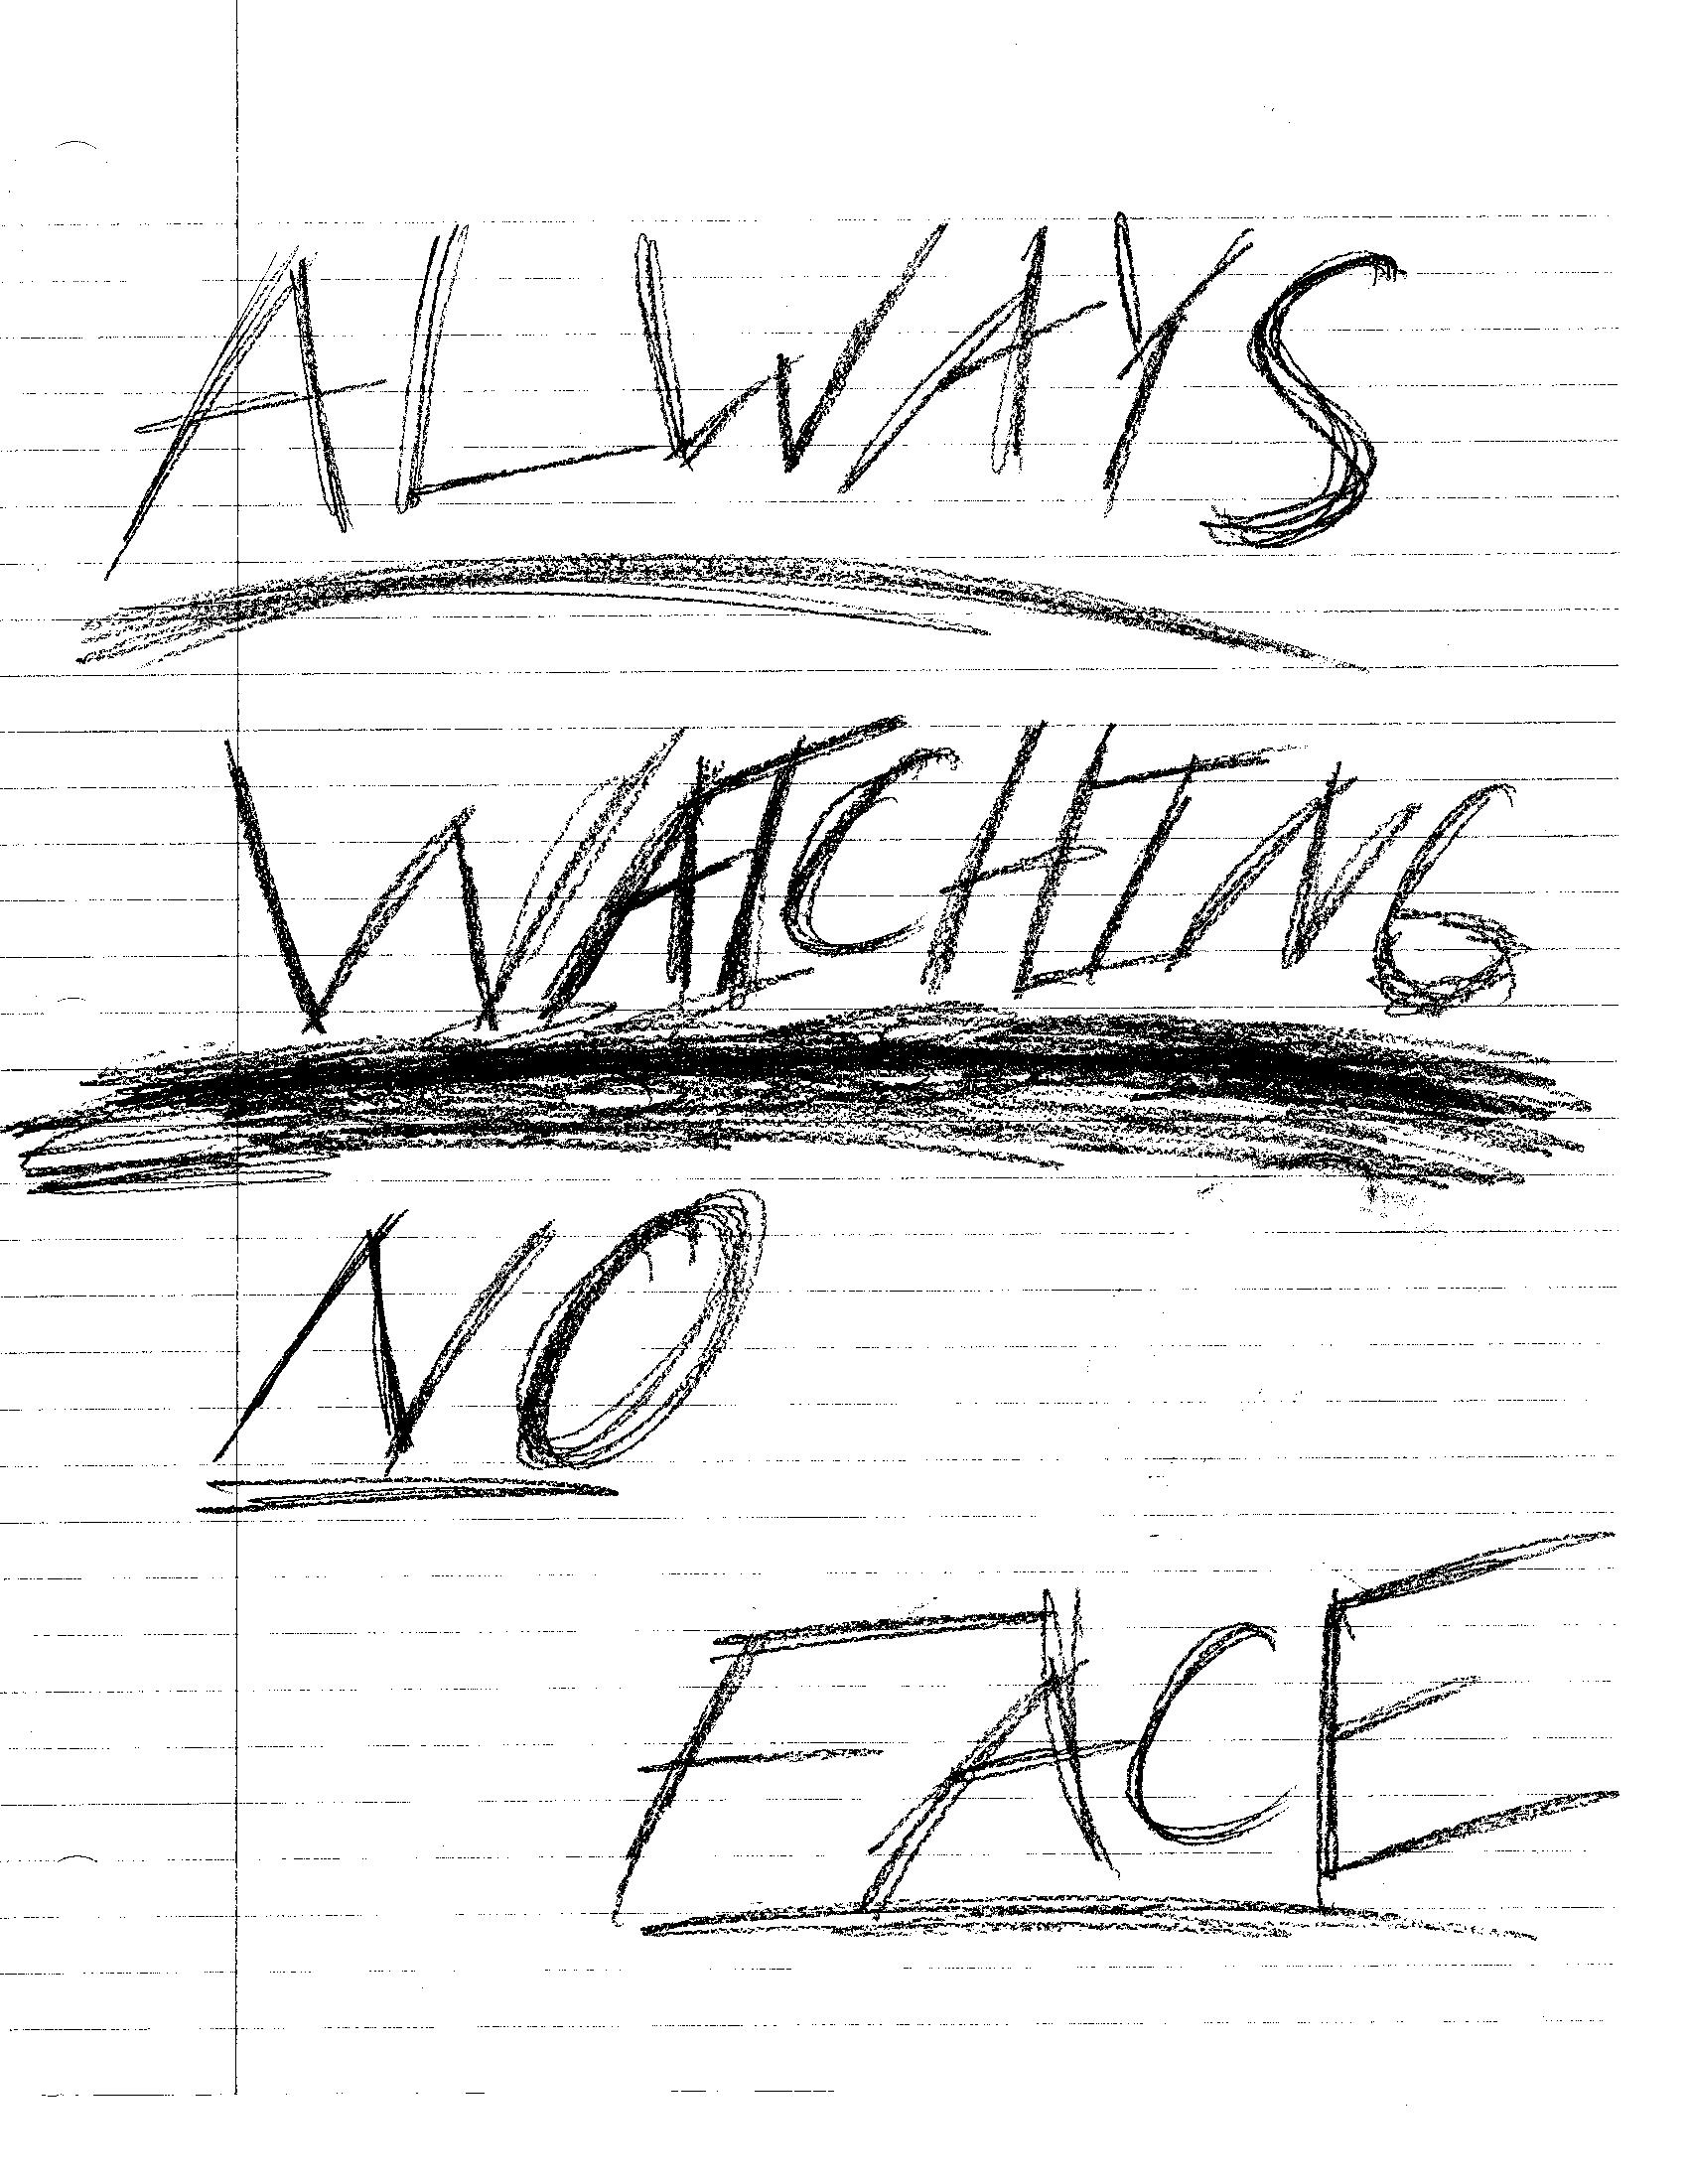 ALWAYS
WATCHING
NO
FACE